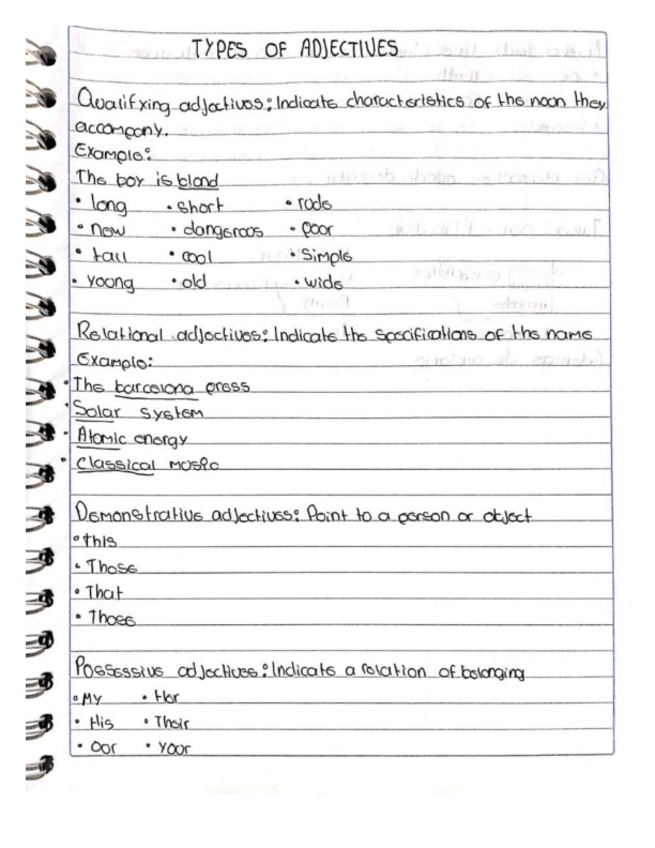 TYPES OF ADJECTIVES
Qualifying adjectives: Indicate characteristics of the noun they
accompany.
Example:
The boy is blond
• long • short • rude
• new • dangerous • poor
• tall • cool • Simple
• young • old • wide
Relational adjectives: Indicate the specifications of the name
Example:
• The barcelona press
• Solar system
• Atomic energy
• Classical music
Demonstrative adjectives: Point to a person or object
• this
• Those
• That
• Those
Possessive adjectives: Indicate a relation of belonging
• My • Her
• His • Their
• Our • Your